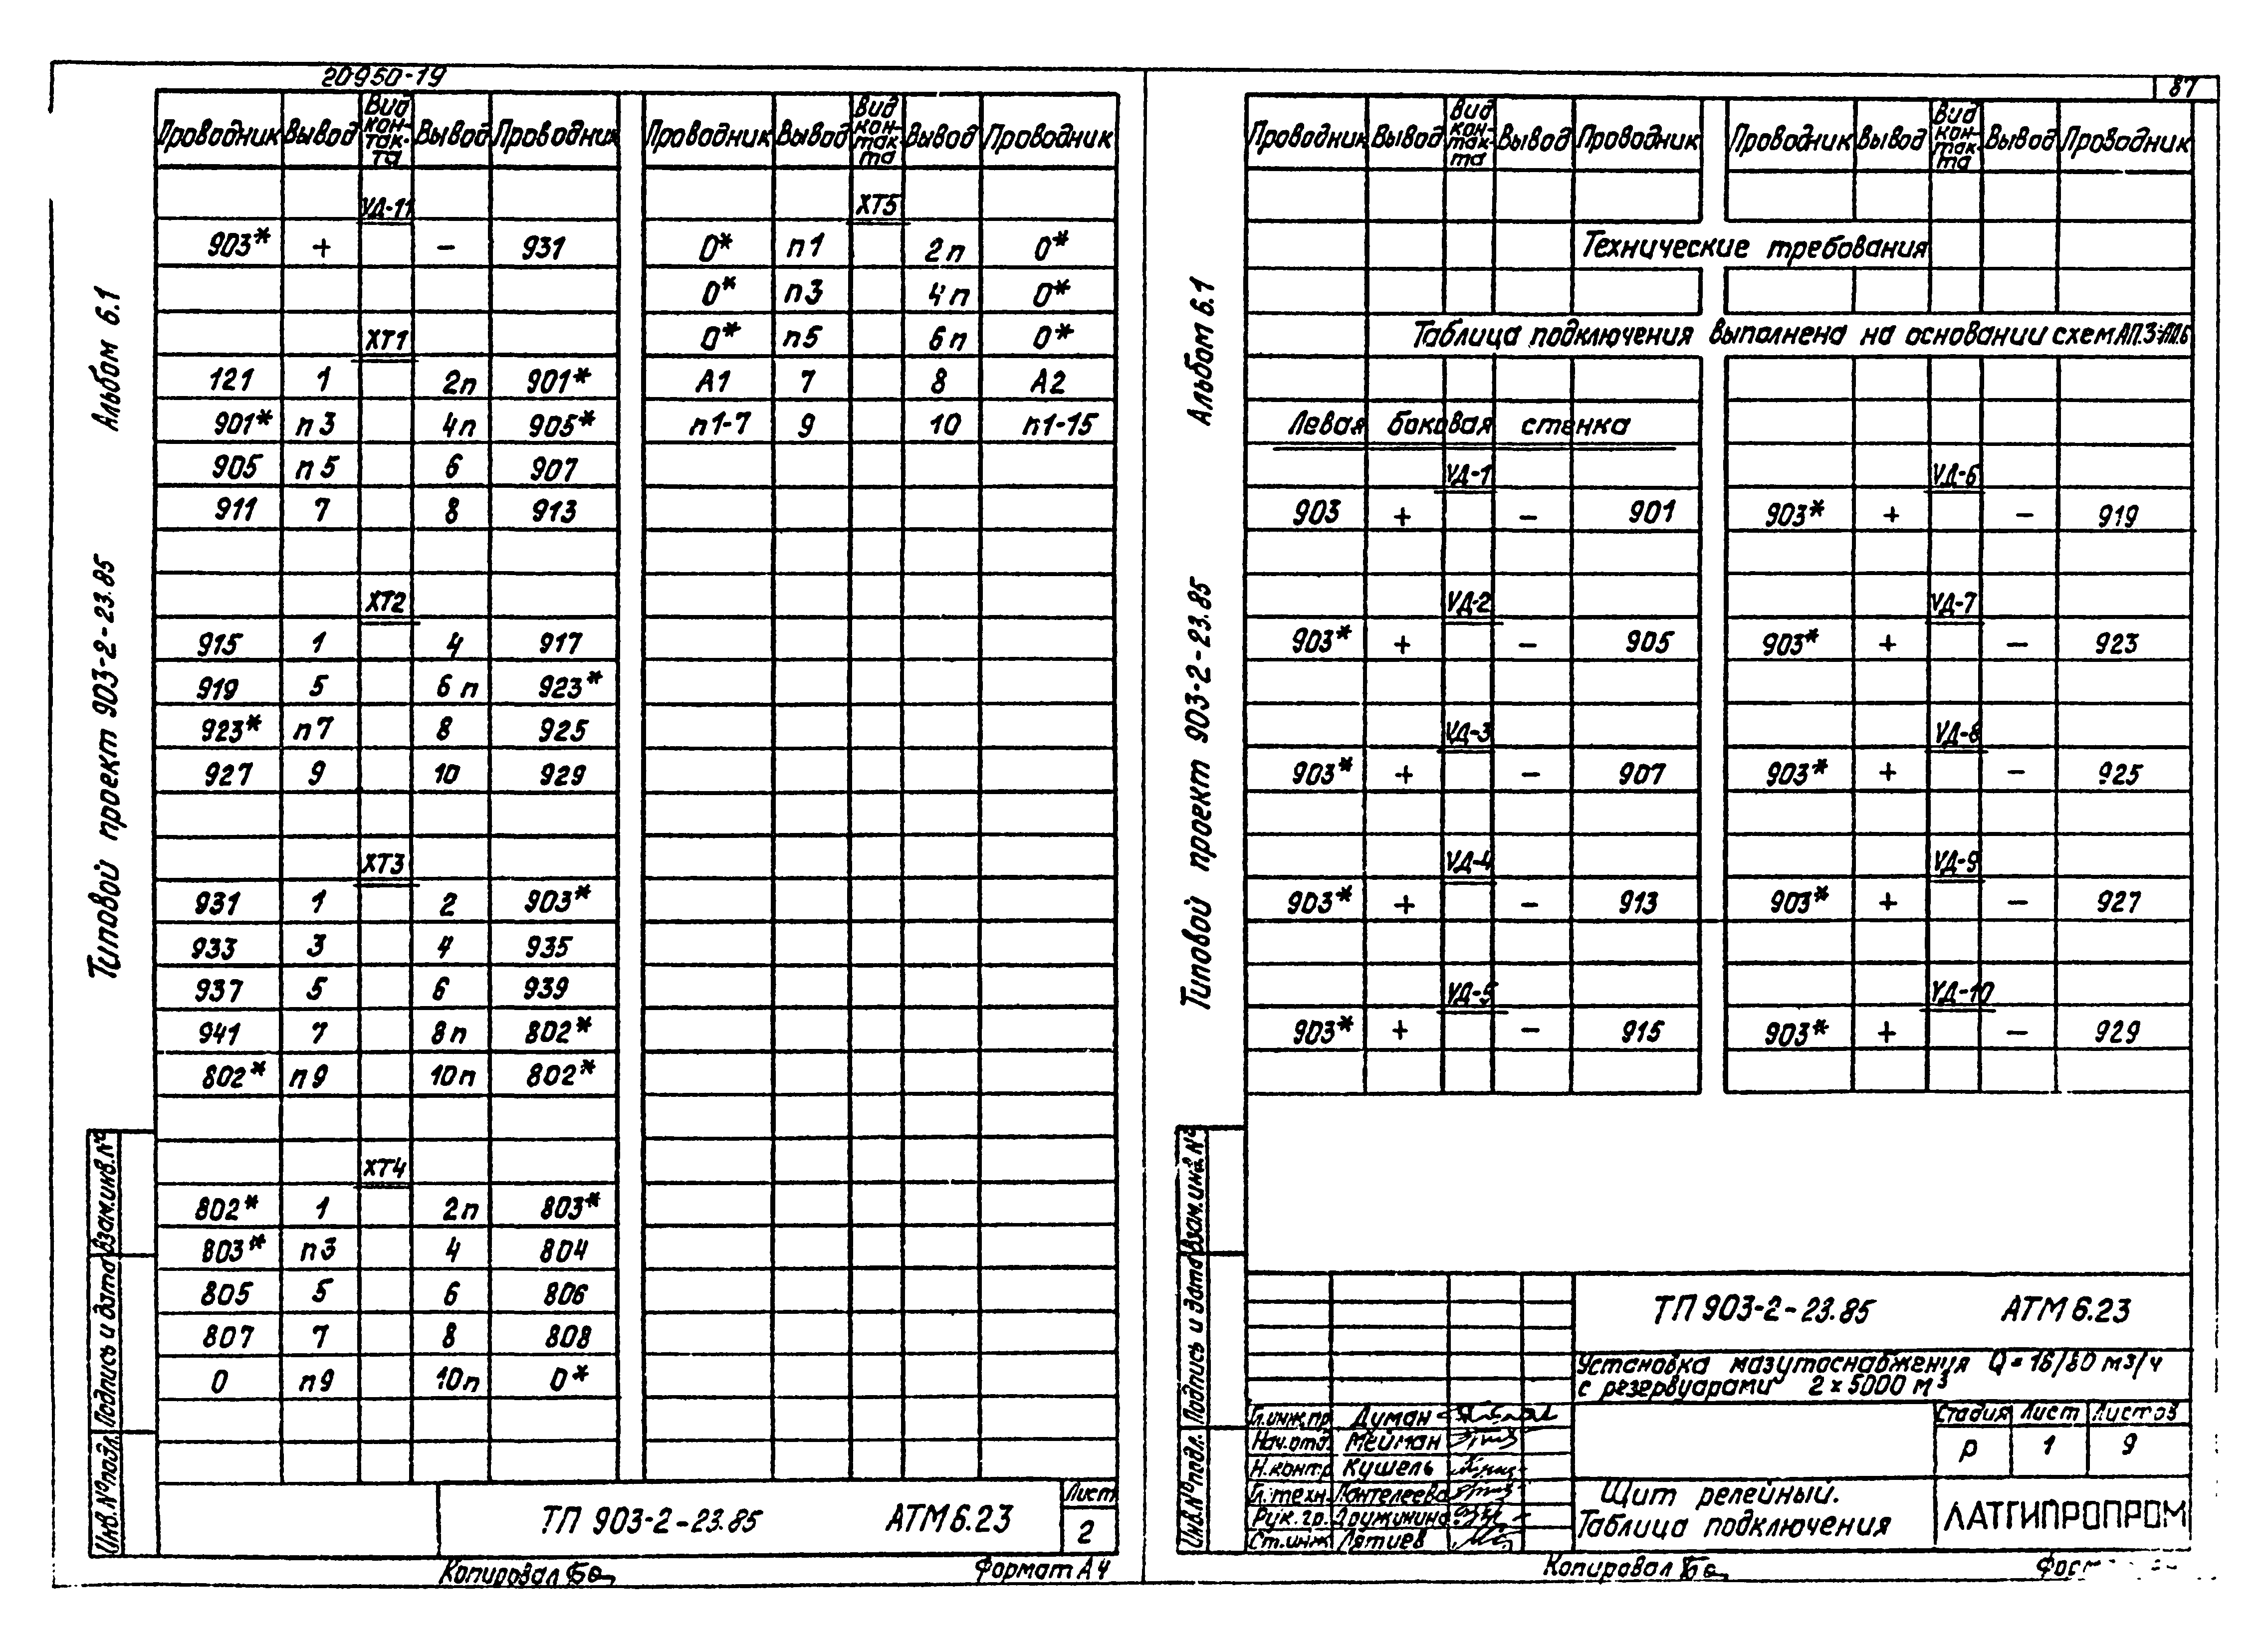 20950-19
Проводник Вывод Вид кон-так-та Вывод Проводник Проводник Вывод Вид кон-так-та Вывод Проводник
УД-11 ХТ5
903* + − 931 0* п1 2п 0*
0* п3 4п 0*
ХТ1 0* п5 6п 0*
121 1 2п 901* А1 7 8 А2
901* п3 4п 905* п1-7 9 10 п1-15
905 п5 6 907
911 7 8 913
ХТ2
915 1 4 917
919 5 6п 923*
923* п7 8 925
927 9 10 929
ХТ3
931 1 2 903*
933 3 4 935
937 5 6 939
941 7 8п 802*
802* п9 10п 802*
ХТ4
802* 1 2п 803*
803* п3 4 804
805 5 6 806
807 7 8 808
0 п9 10п 0*
Альбом 6.1
Типовой проект 903-2-23.85
Взам.инв.№
Подпись и дата
Инв.№ подл.
ТП 903-2-23.85 АТМ6.23
Лист
2
Копировал
Формат А4
87
Проводник Вывод Вид кон-так-та Вывод Проводник Проводник Вывод Вид кон-так-та Вывод Проводник
Технические требования
Таблица подключения выполнена на основании схем
Левая боковая стенка
УД-1 УД-6
903 + − 901 903* + − 919
УД-2 УД-7
903* + − 905 903* + − 923
УД-3 УД-8
903* + − 907 903* + − 925
УД-4 УД-9
903* + − 913 903* + − 927
УД-5 УД-10
903* + − 915 903* + − 929
Альбом 6.1
Типовой проект 903-2-23.85
Взам.инв.№
Подпись и дата
Инв.№ подл.
ТП 903-2-23.85 АТМ6.23
Установка мазутоснабжения Q = 16/80 м3/ч
с резервуарами 2×5000 м³
Гл.инж.пр. Думан
Нач.отд. Мейман
Н.контр. Кушель
Гл.техн. Пантелеева
Рук.гр. Дружинина
Ст.инж. Лятиев
Стадия Лист Листов
Р 1 9
Щит релейный.
Таблица подключения
ЛАТГИПРОПРОМ
Копировал